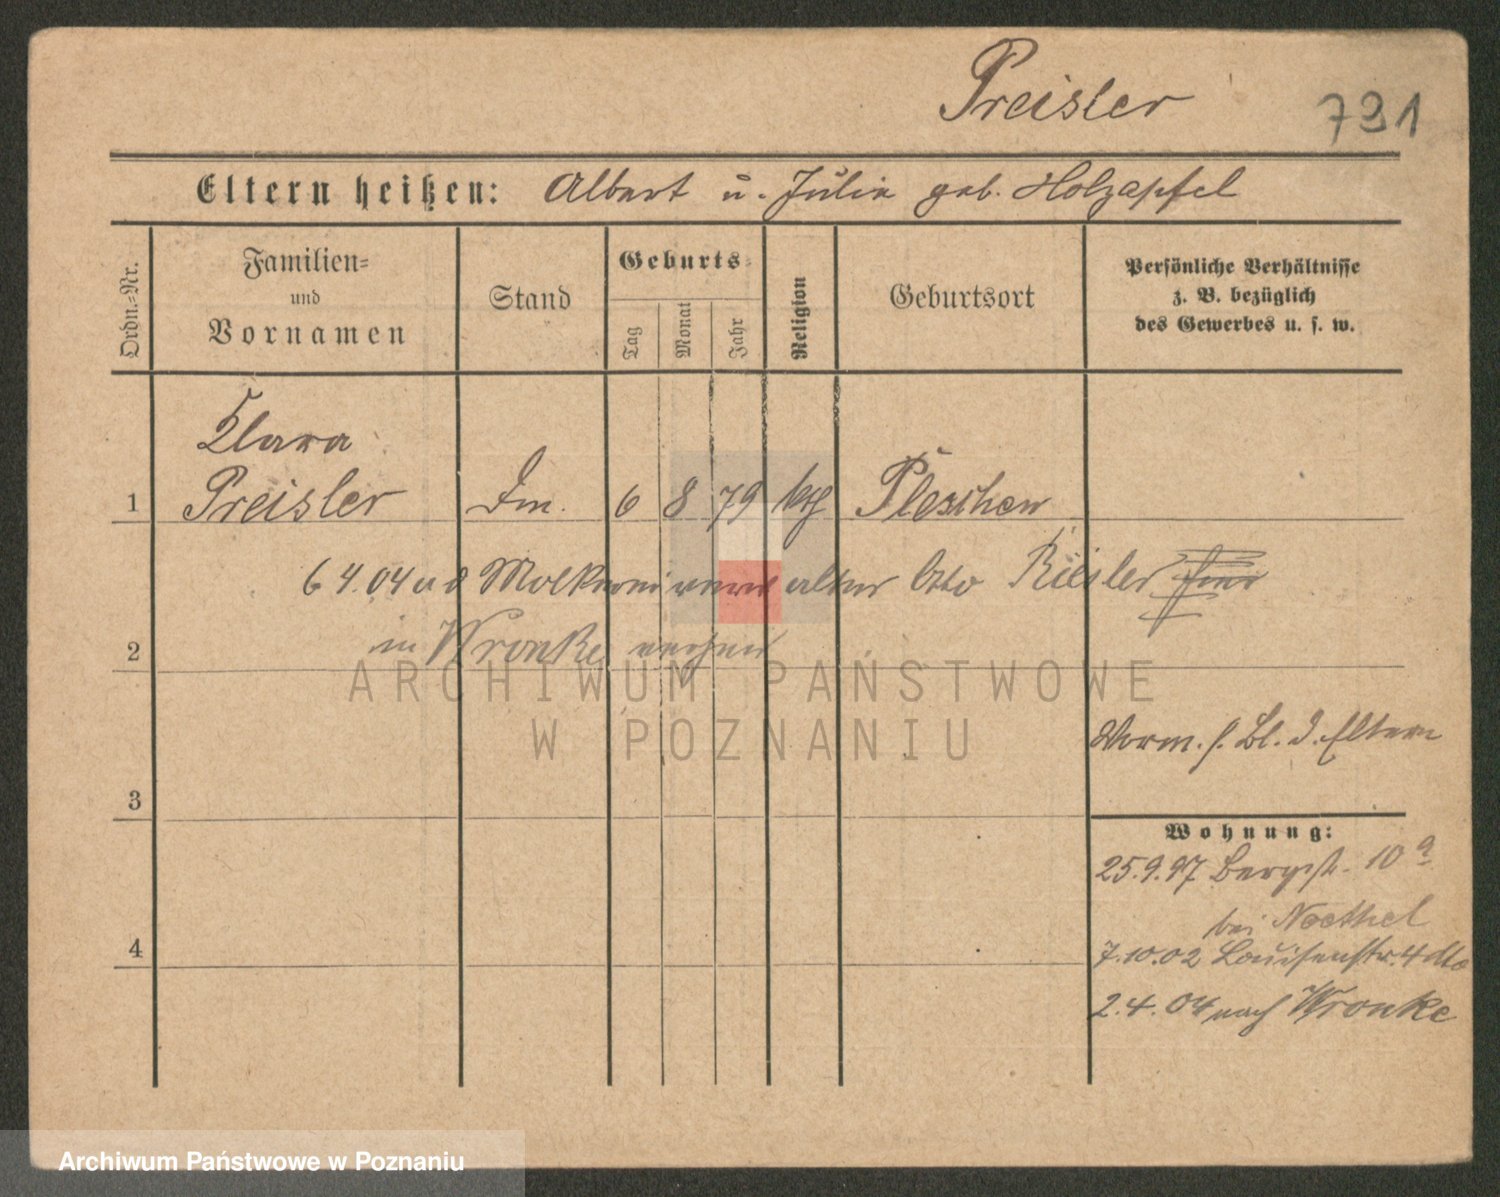 Preisler
791
Eltern heißen: Albert u. Julie geb. Holzapfel
Ordn.-Nr.
Familien-
und
Vornamen
Stand
Geburts-
Tag
Monat
Jahr
Religion
Geburtsort
Persönliche Verhältnisse
z. B. bezüglich
des Gewerbes u. s. w.
Clara
1 Preisler 6 8 79 kth Pleschen
6 4.04 a d Molkerei verwalter Otto
2 in Wronke verheir
ARCHIWUM PAŃSTWOWE
W POZNANIU
Vorm. s. Bl. d. Eltern
3
Wohnung:
25.9.97 Bergstr. 10 a
bei Noethel
4
7.10.02 Louisenstr. 4 dto
2.4.04 nach Wronke
Archiwum Państwowe w Poznaniu